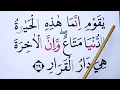 يَٰقَوْمِ إِنَّمَا هَٰذِهِ الْحَيَوٰةُ
الدُّنْيَا مَتَاعٌ وَّإِنَّ الْاٰخِرَةَ
هِيَ دَارُ الْقَرَارِ